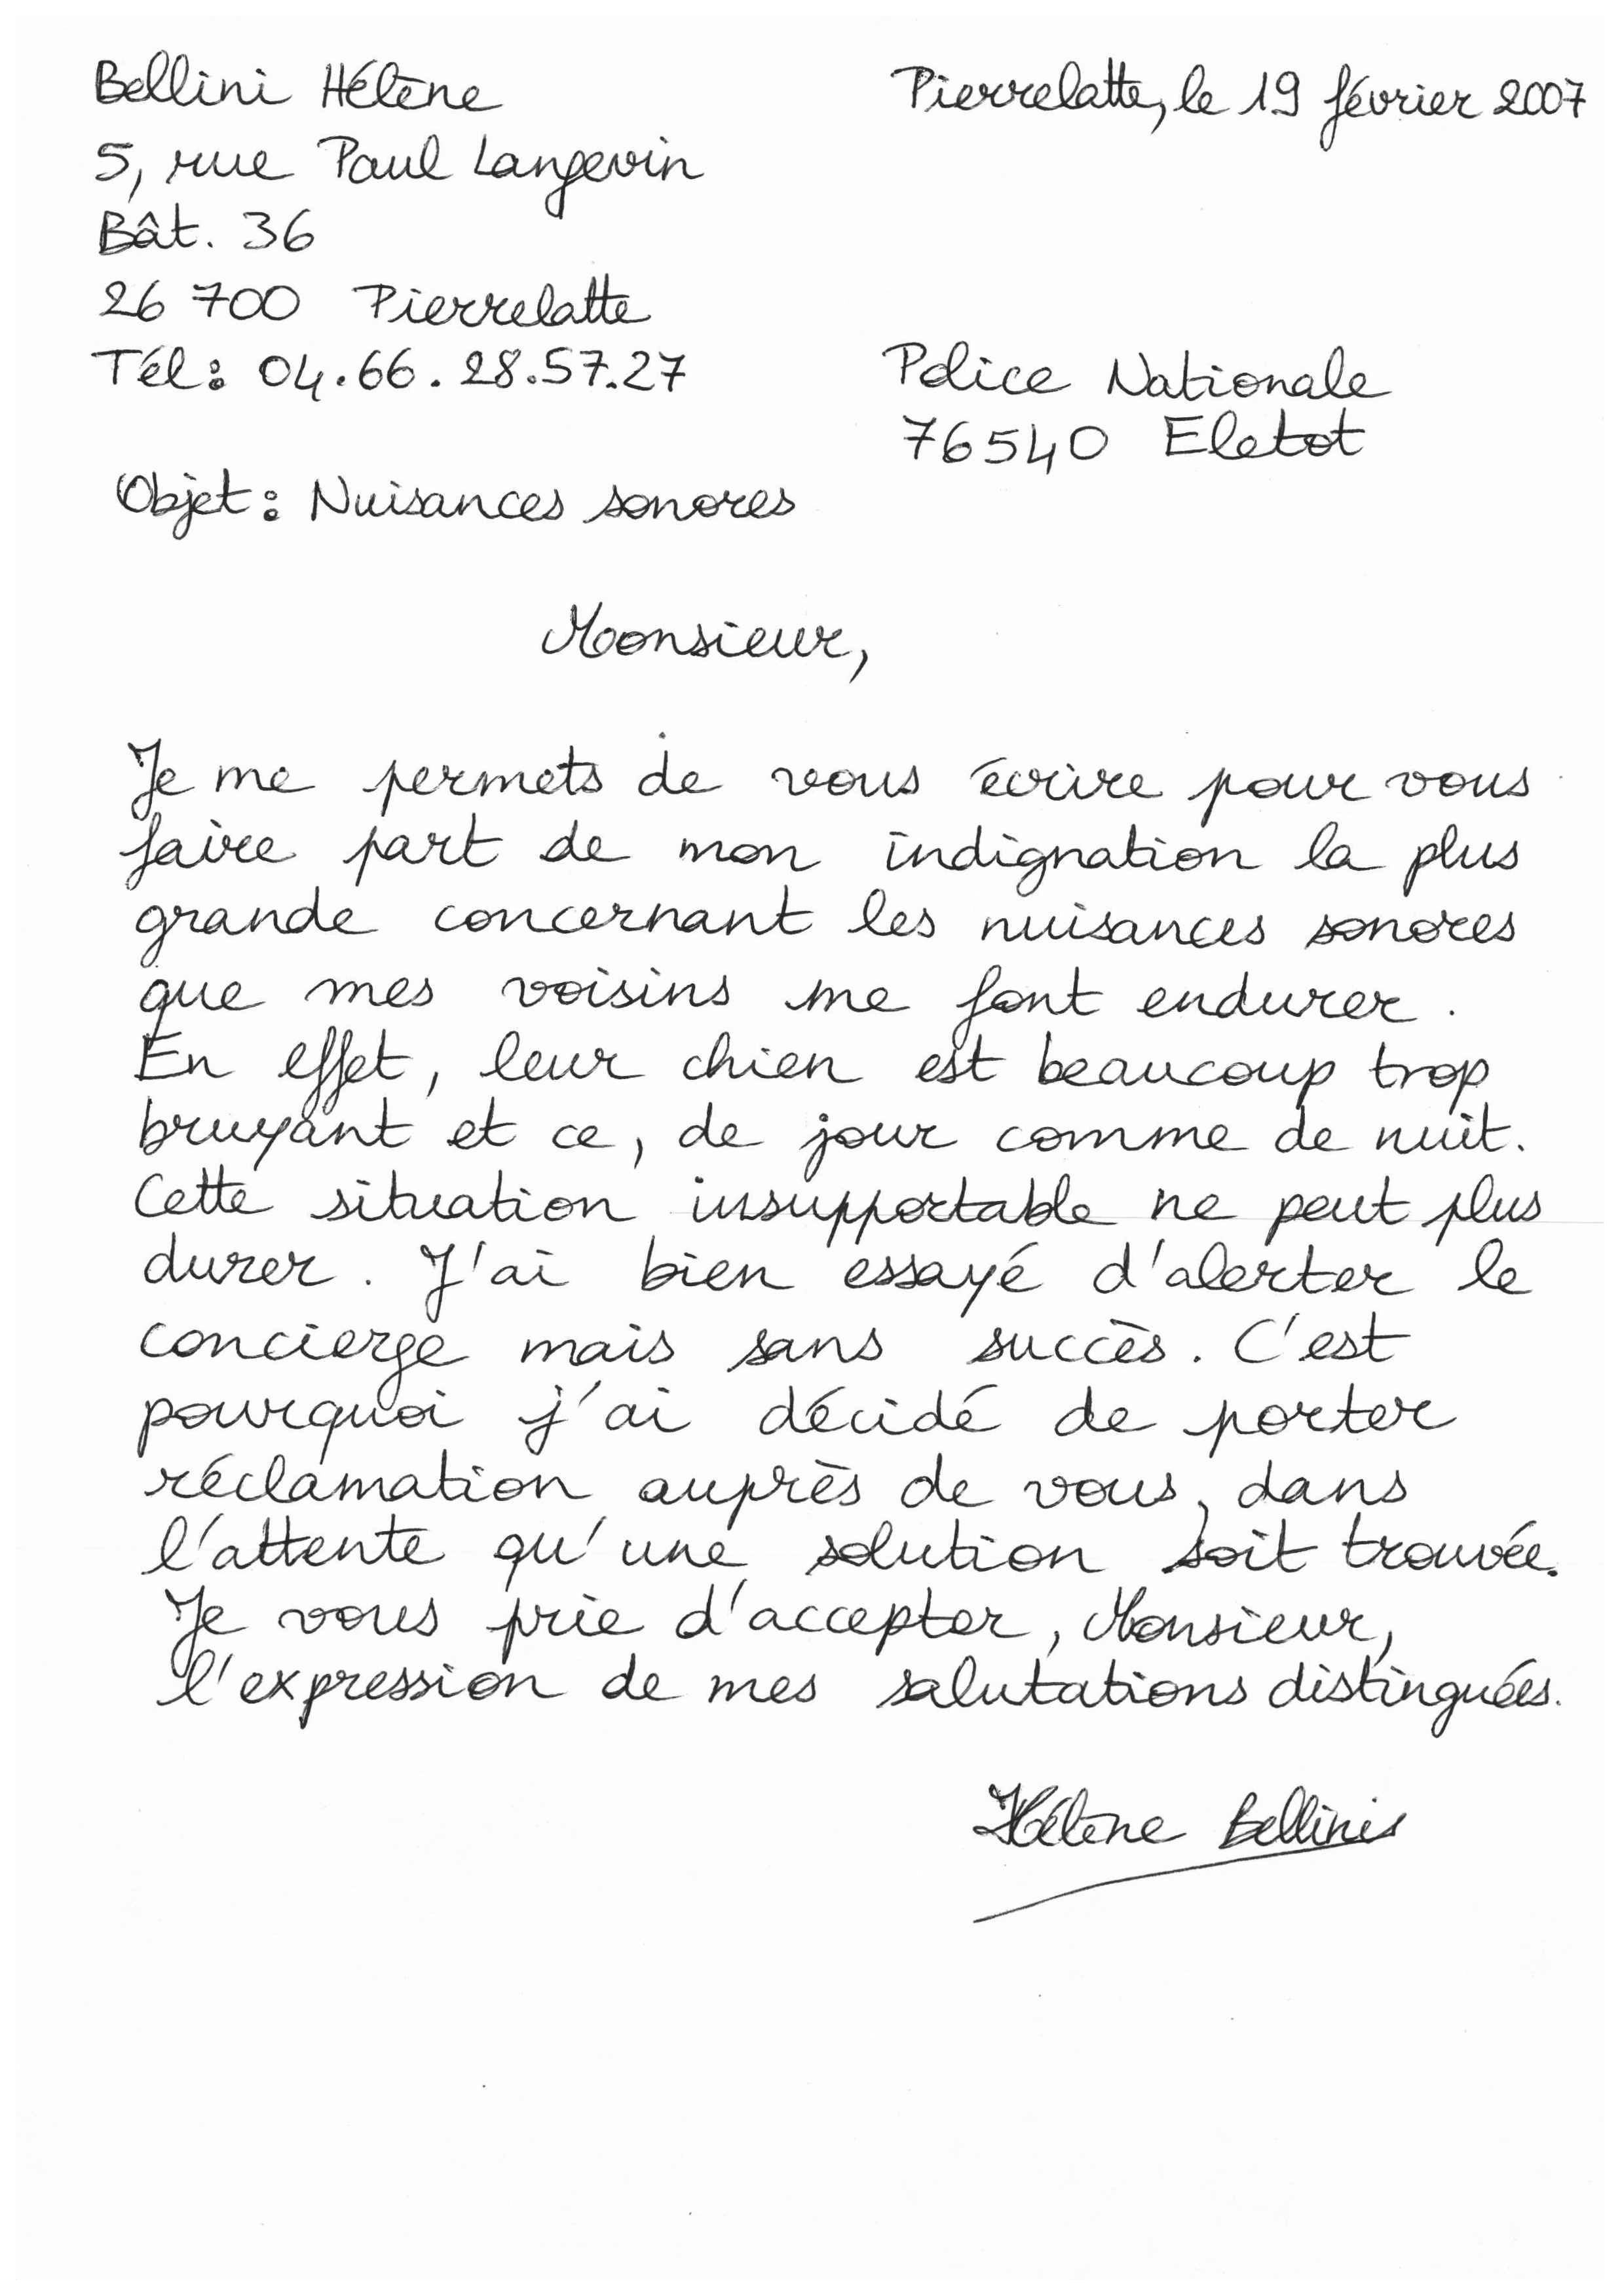 Bellini Hélène
Pierrelatte, le 19 février 2007
5, rue Paul Langevin
Bât. 36
26 700 Pierrelatte
Tél : 04.66.28.57.27
Police Nationale
76540 Eletot
Objet : Nuisances sonores
Monsieur,
Je me permets de vous écrire pour vous
faire part de mon indignation la plus
grande concernant les nuisances sonores
que mes voisins me font endurer.
En effet, leur chien est beaucoup trop
bruyant et ce, de jour comme de nuit.
Cette situation insupportable ne peut plus
durer. J'ai bien essayé d'alerter le
concierge mais sans succès. C'est
pourquoi j'ai décidé de porter
réclamation auprès de vous, dans
l'attente qu'une solution soit trouvée.
Je vous prie d'accepter, Monsieur,
l'expression de mes salutations distinguées.
Hélène Bellini